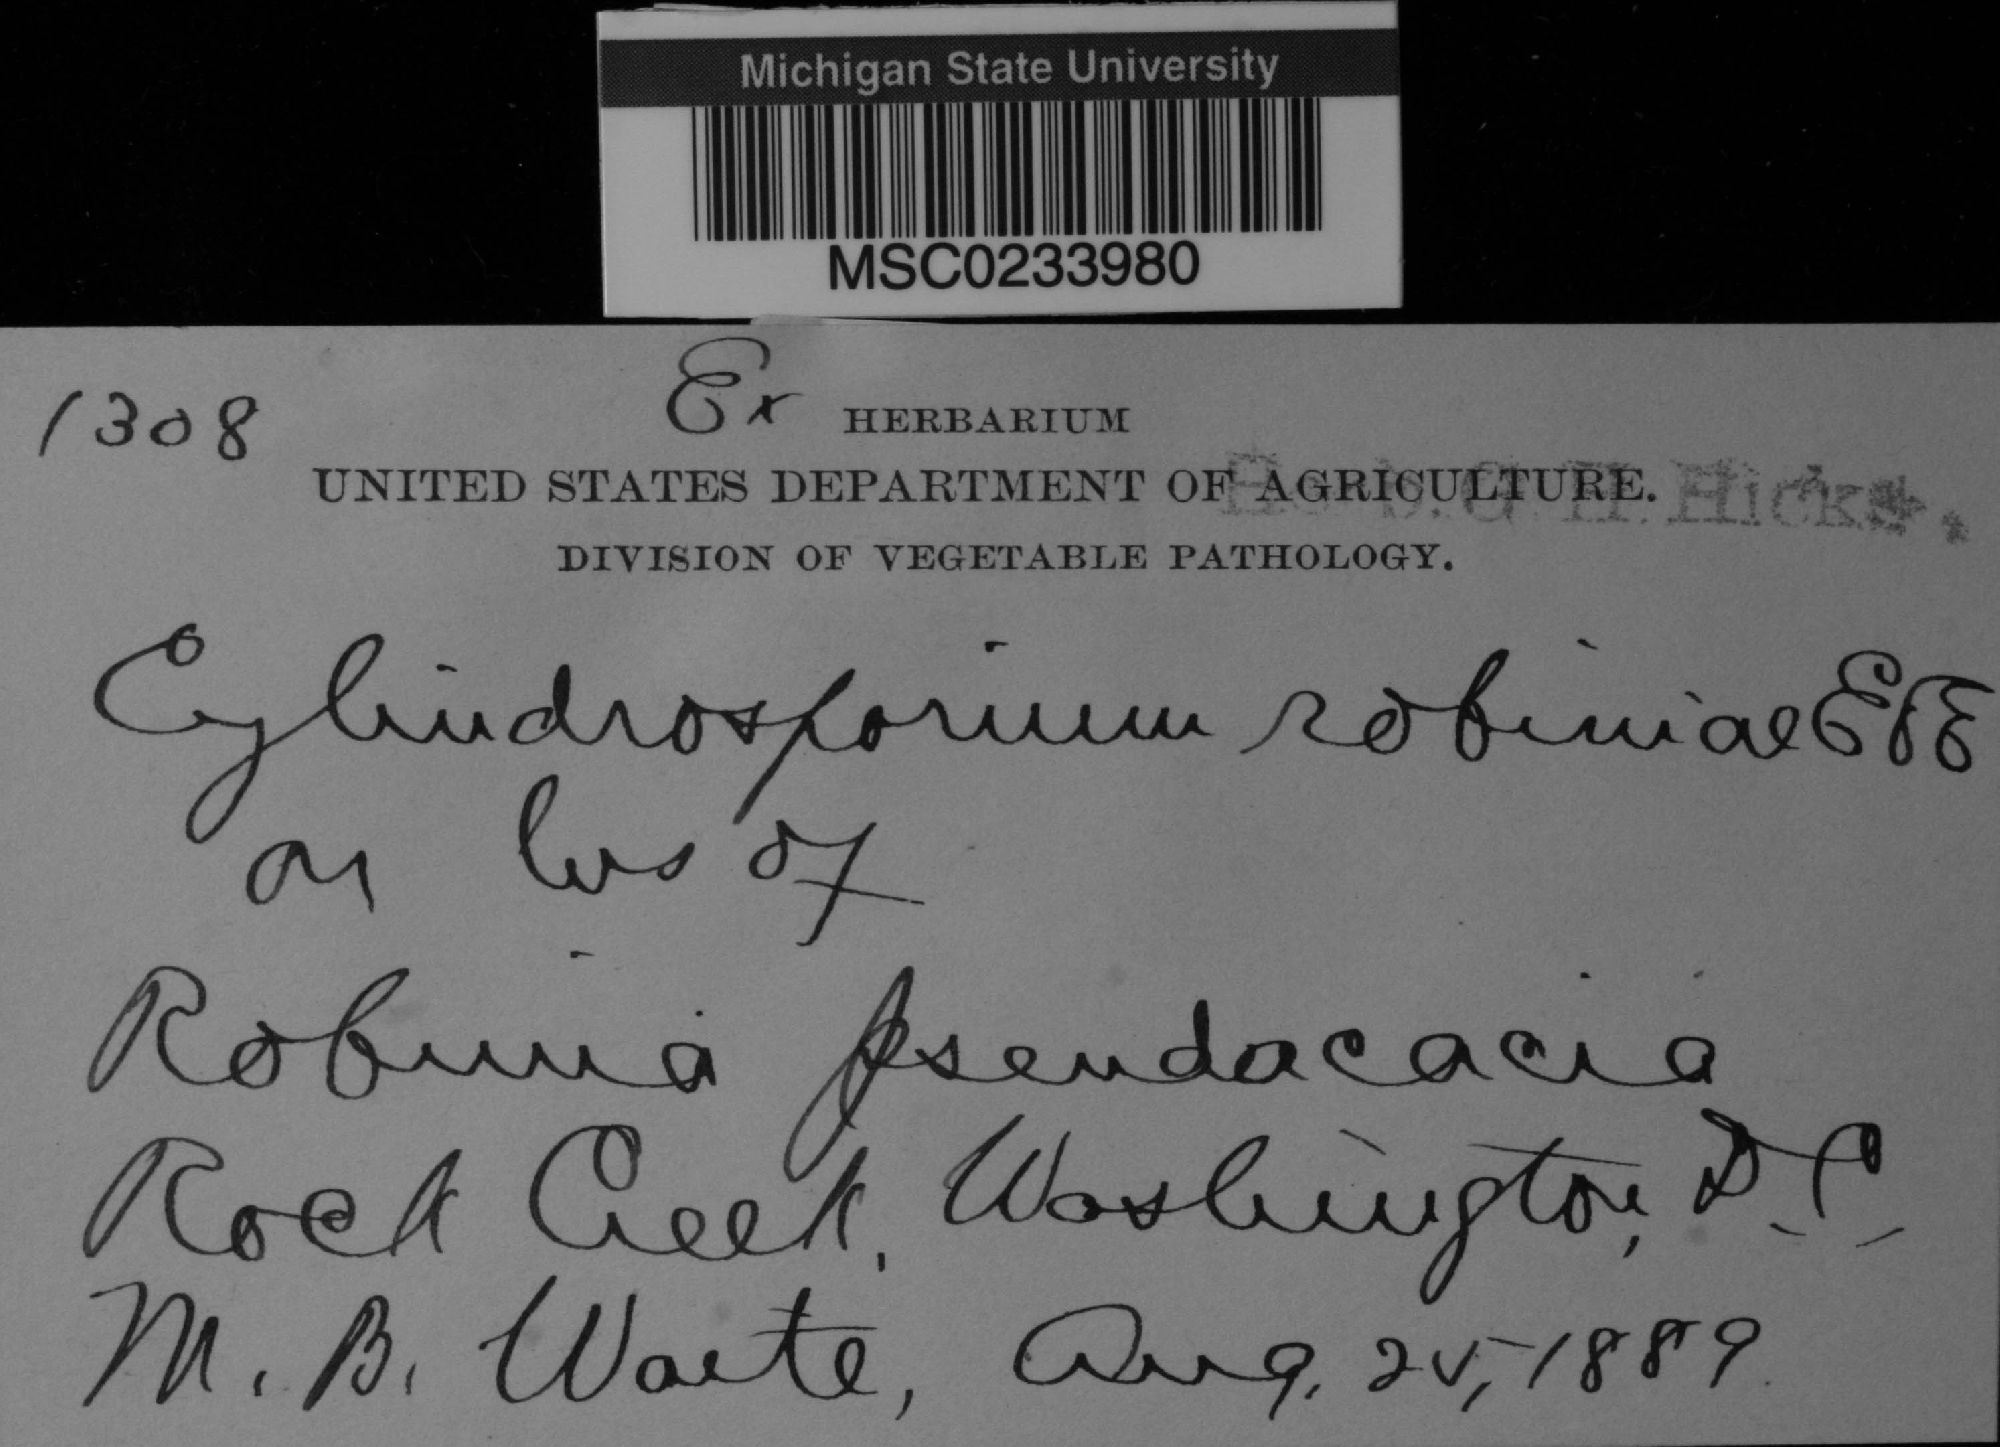 Michigan State University
MSC0233980
1308 Ex HERBARIUM
UNITED STATES DEPARTMENT OF AGRICULTURE.
Herb. G. H. Hicks.
DIVISION OF VEGETABLE PATHOLOGY.
Cylindrosporium robiniae E&E
on lvs of
Robinia pseudacacia
Rock Creek, Washington, D.C.
M. B. Waite, Aug. 25, 1889